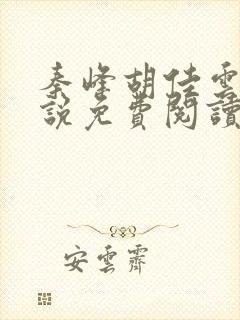 秦峰胡佳雲
說免費閱讀
安雲霽